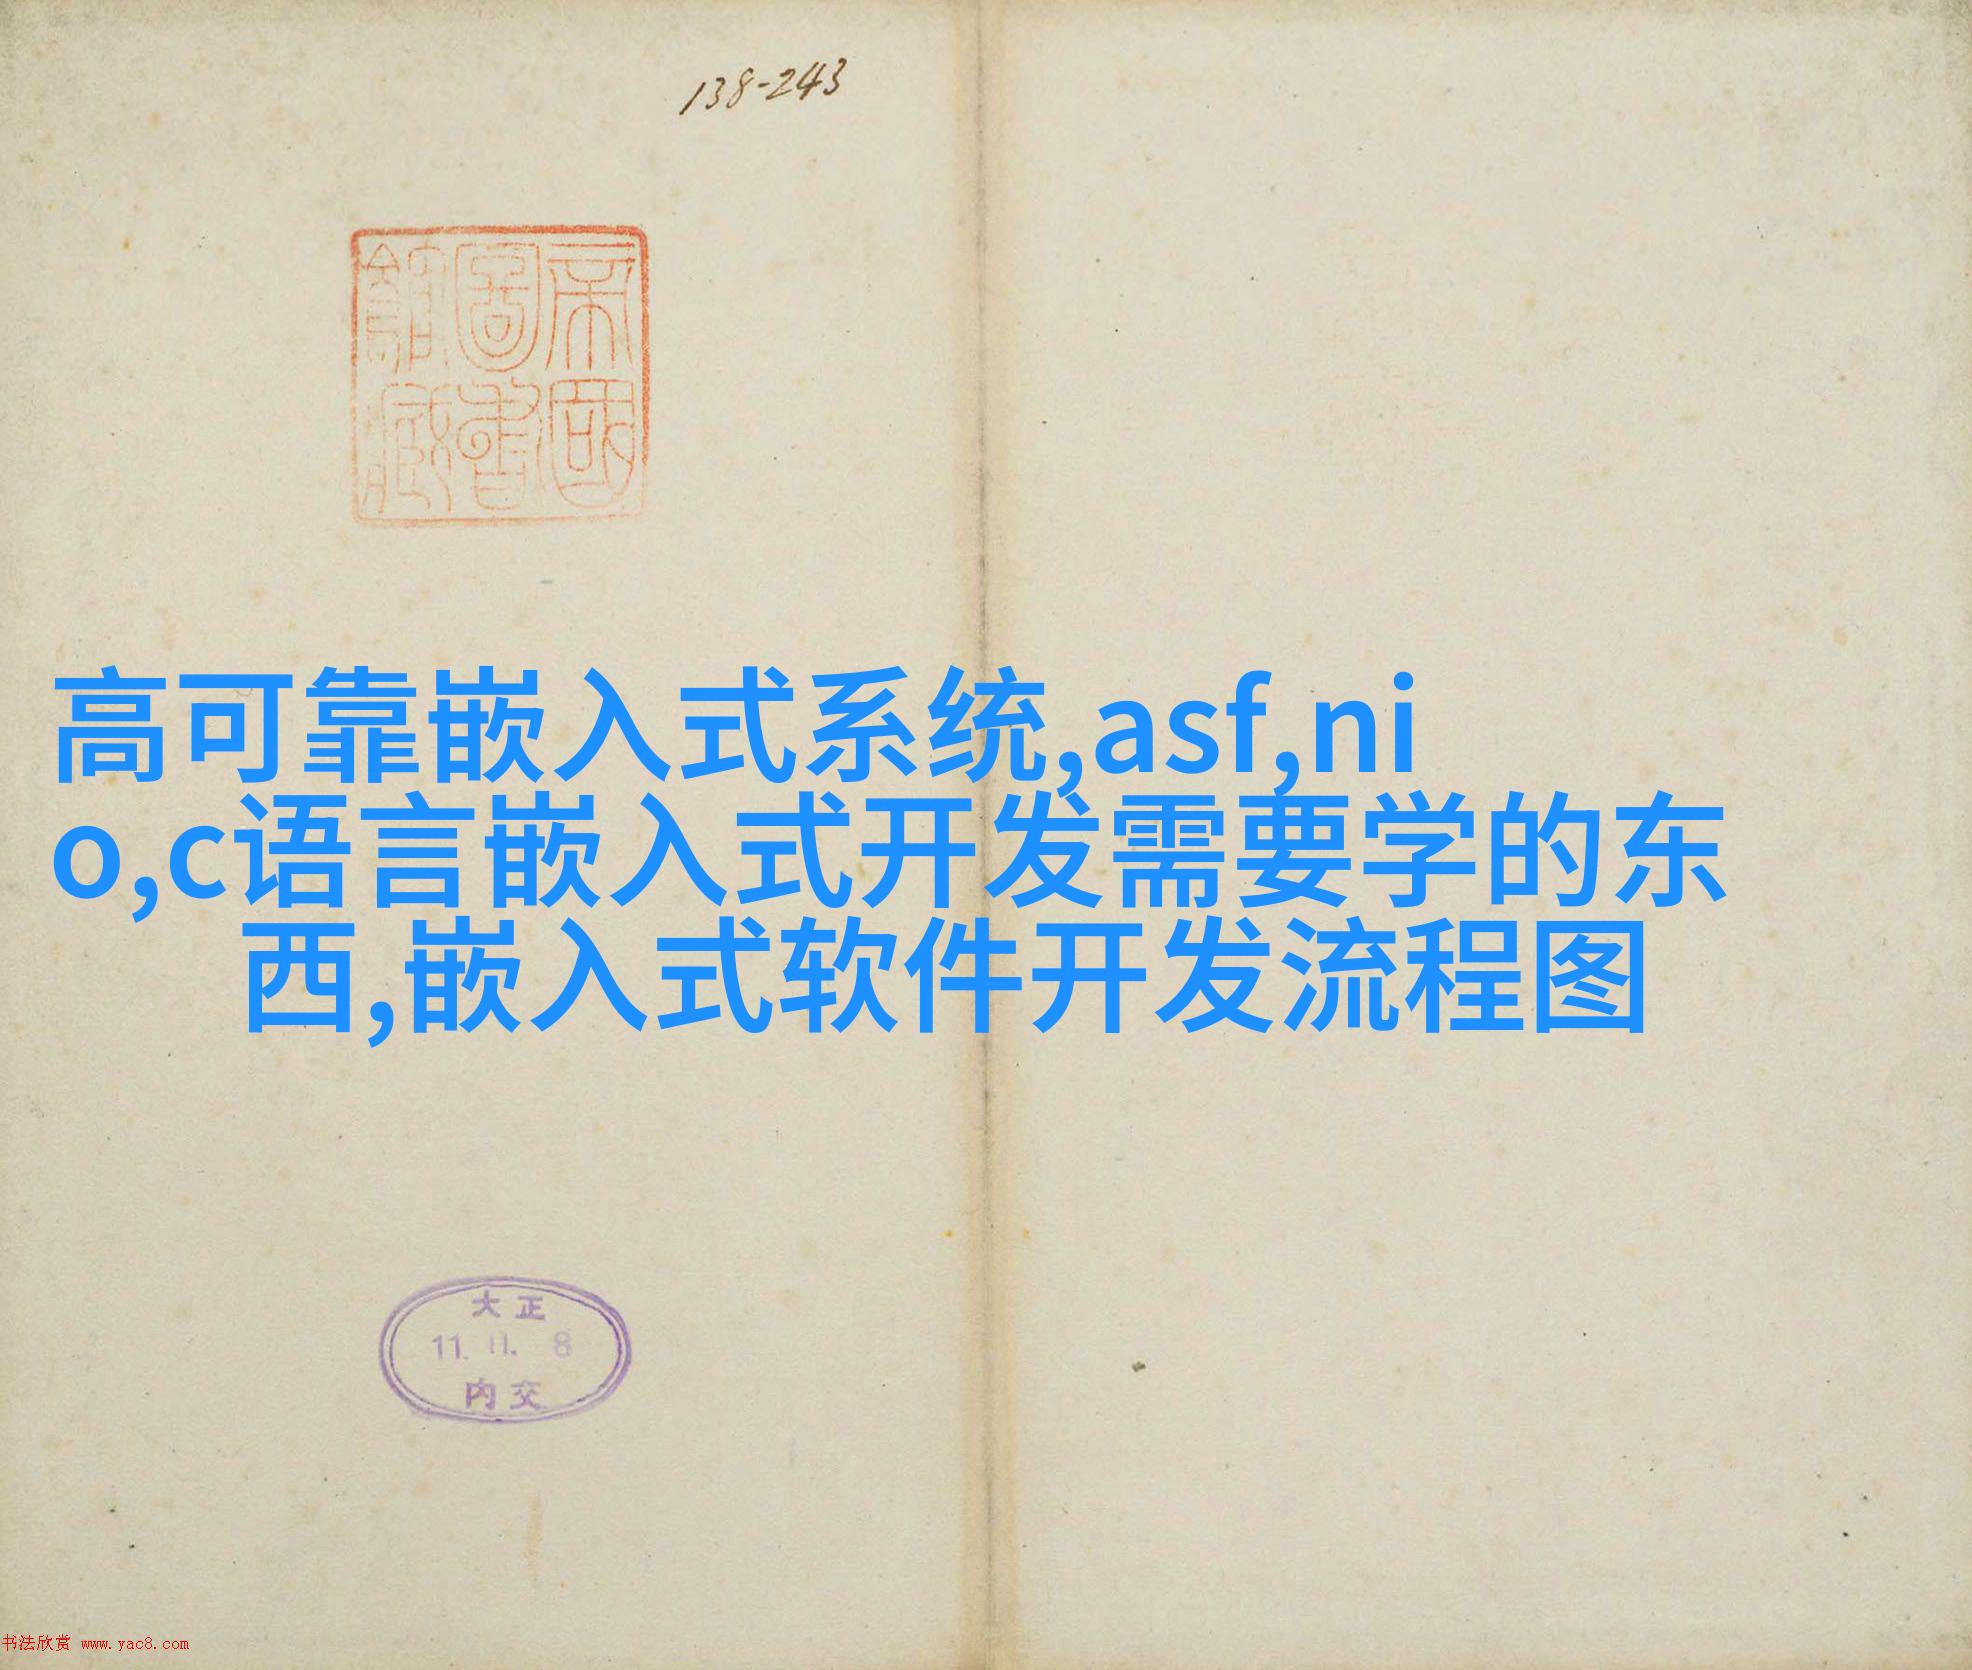 138-243
帝國
圖書
館藏
高可靠嵌入式系统,asf,ni
o,c语言嵌入式开发需要学的东
西,嵌入式软件开发流程图
大正
11. 11. 8
内交
书法欣赏 www.yac8.com